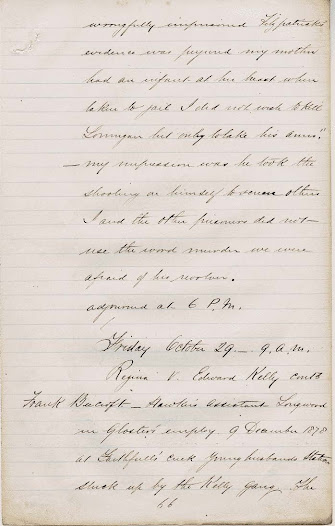 wrongfully imprisoned Fitzpatrick's
evidence was perjured my mother
had an infant at her breast when
taken to jail I did not wish to kill
Lonnigan but only to take his arms."
— my impression was he took the
shooting on himself to screen others
I and the other prisoners did not
use the word murder we were
afraid of his revolver.
adjourned at 6 P.M.
Friday October 29. — 9 a.m.
Regina V. Edward Kelly contd
Frank Becroft — Hawkers assistant Longwood
in Gloster's employ. 9 December 1878
at Faithfull's Creek Younghusbands Station
stuck up by the Kelly gang. The
66